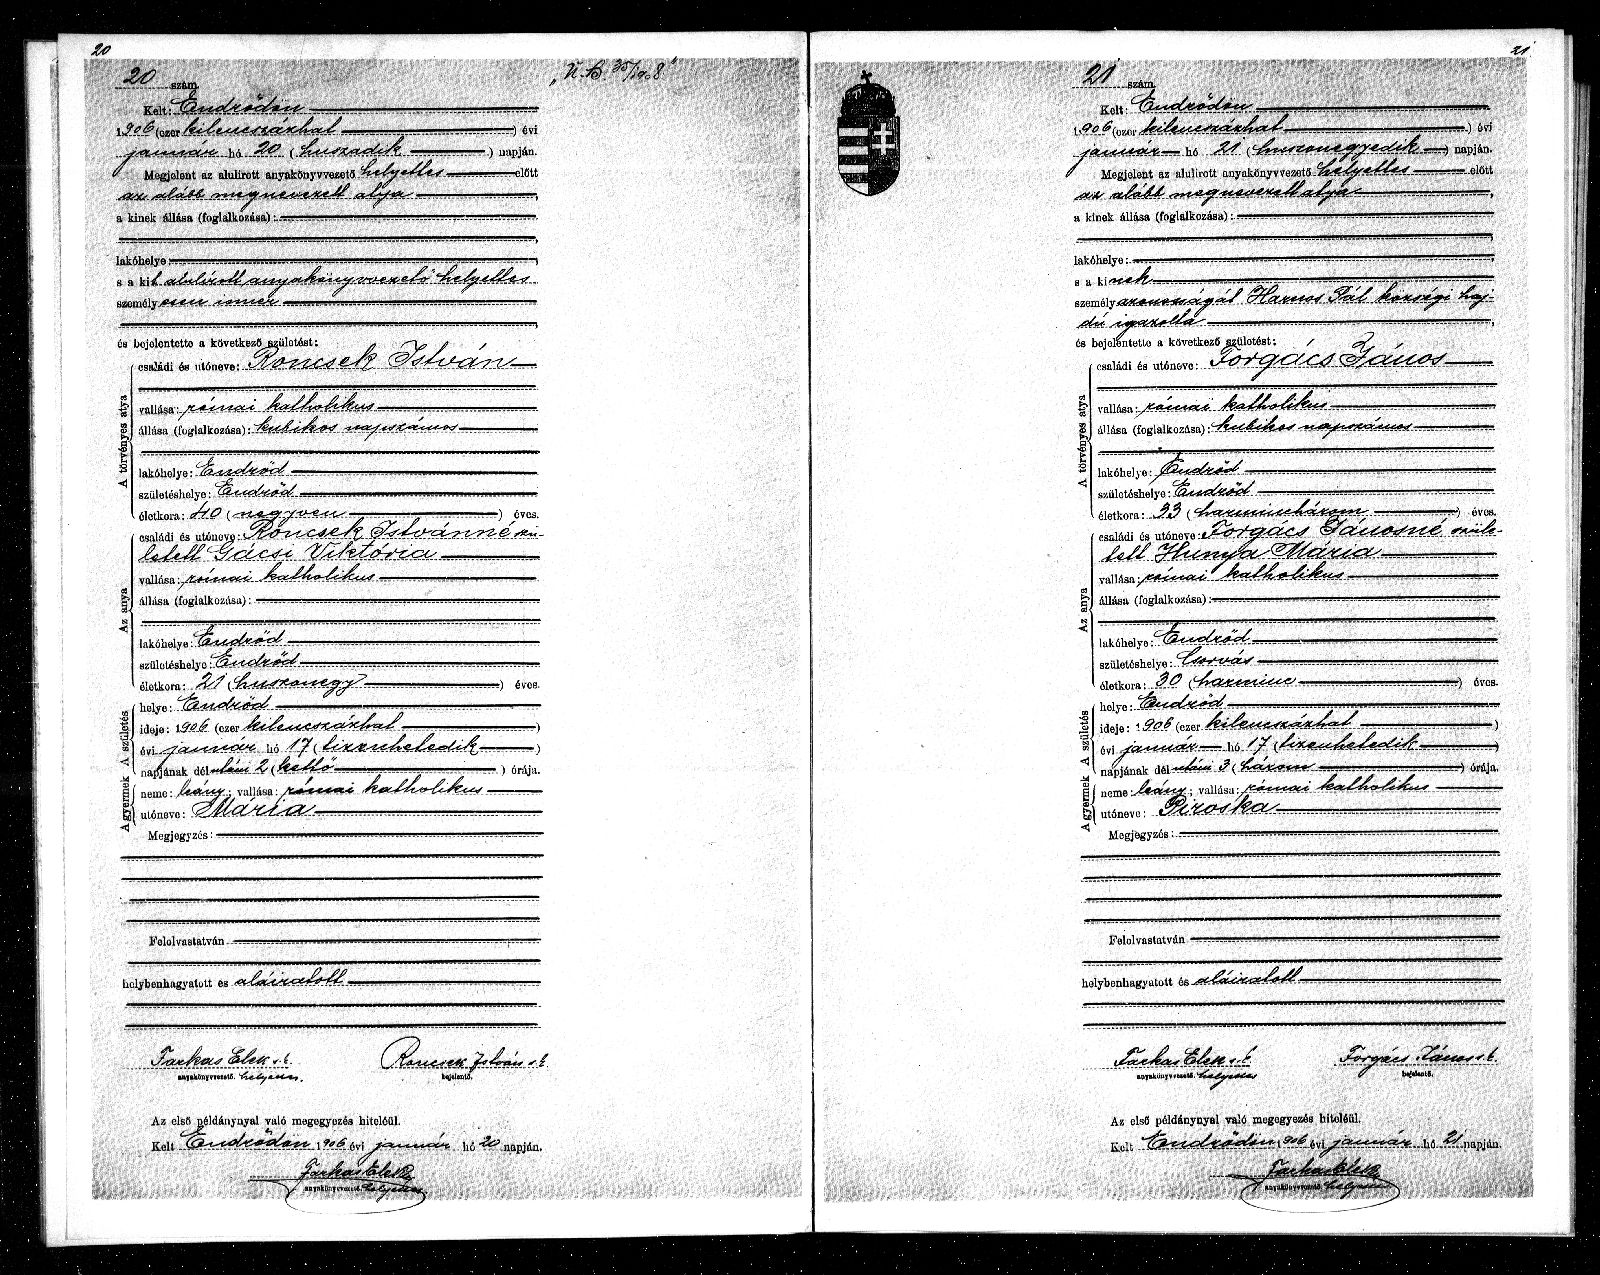 20
20 szám.
Kelt: Endrődön
1906 (ezer kilencszázhat) évi
január hó 20 (huszadik) napján.
Megjelent az alulirott anyakönyvvezető helyettes előtt
az alább megnevezett atya,
a kinek állása (foglalkozása):
lakóhelye:
s a kit alulírott anyakönyvvezető helyettes
személyesen ismer
és bejelentette a következő születést:
A törvényes atya
családi és utóneve: Roncsek István
vallása: római katholikus
állása (foglalkozása): kubikos napszámos
lakóhelye: Endrőd
születéshelye: Endrőd
életkora: 40 (negyven) éves.
Az anya
családi és utóneve: Roncsek Istvánné szü-
letett Gácsi Viktória
vallása: római katholikus
állása (foglalkozása):
lakóhelye: Endrőd
születéshelye: Endrőd
életkora: 21 (huszonegy) éves.
A születés
helye: Endrőd
ideje: 1906 (ezer kilencszázhat)
évi január hó 17 (tizenhetedik)
napjának délutáni 2 (kettő) órája.
A gyermek
neme: leány; vallása: római katholikus
utóneve: Mária
Megjegyzés:
Felolvastatván
helybenhagyatott és aláiratott
Farkas Elek s.k. Roncsek István s.k.
anyakönyvvezető. helyettes. bejelentő.
Az első példánynyal való megegyezés hiteléül.
Kelt Endrődön 1906 évi január hó 20 napján.
Farkas Elek
anyakönyvvezető. helyettes
21
21 szám.
Kelt: Endrődön
1906 (ezer kilencszázhat) évi
január hó 21 (huszonegyedik) napján.
Megjelent az alulirott anyakönyvvezető helyettes előtt
az alább megnevezett atya,
a kinek állása (foglalkozása):
lakóhelye:
s a kinek
személyazonosságát Harnos Pál községi haj-
dú igazolta
és bejelentette a következő születést:
A törvényes atya
családi és utóneve: Forgács János
vallása: római katholikus
állása (foglalkozása): kubikos napszámos
lakóhelye: Endrőd
születéshelye: Endrőd
életkora: 33 (harminchárom) éves.
Az anya
családi és utóneve: Forgács Jánosné szüle-
tett Hunya Mária
vallása: római katholikus
állása (foglalkozása):
lakóhelye: Endrőd
születéshelye: Csorvás
életkora: 30 (harminc) éves.
A születés
helye: Endrőd
ideje: 1906 (ezer kilencszázhat)
évi január hó 17 (tizenhetedik)
napjának délutáni 3 (három) órája.
A gyermek
neme: leány; vallása: római katholikus
utóneve: Piroska
Megjegyzés:
Felolvastatván
helybenhagyatott és aláiratott
Farkas Elek s.k. Forgács János s.k.
anyakönyvvezető. helyettes bejelentő.
Az első példánynyal való megegyezés hiteléül.
Kelt Endrődön 1906 évi január hó 21 napján.
Farkas Elek
anyakönyvvezető. helyettes